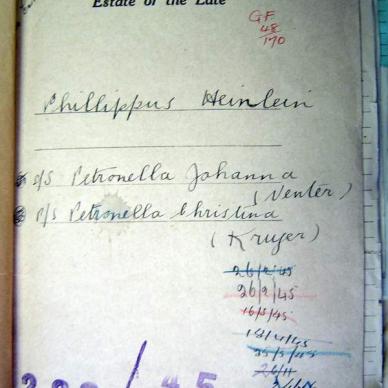 Estate of the Late
G.F.
48
170
Phillippus Heinlein
o/s Petronella Johanna
(Venter)
p/s Petronella Christina
(Kruger)
26/2/45
26/2/45
16/3/45
18/4/45
25/5/45
26/11
/45